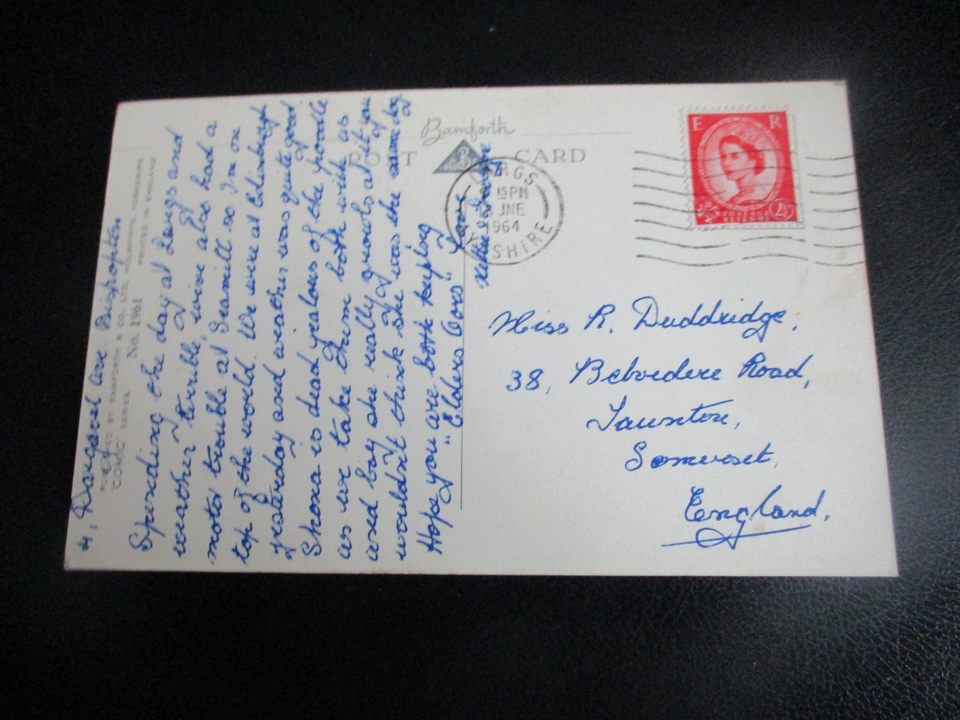 Bamforth
POST CARD
LARGS
15PM
JNE
1964
SHIRE
E R
POSTAGE REVENUE
Miss R. Duddridge,
38, Belvedere Road,
Taunton,
Somerset,
England.
4, Dargavel Ave. Bishopton
Spending the day at Largs and
weather terrible, wire also had a
motor trouble at so I'm on
top of the world. We were at
yesterday and weather was quite good
Shona is dead jealous of the poodle
as we take them both with us
and boy she really growls at it you
wouldn't think she was the same dog.
Hope you are both keeping
"Elders Oors" Love
"COMIC" SERIES No. 1961
PRINTED IN ENGLAND